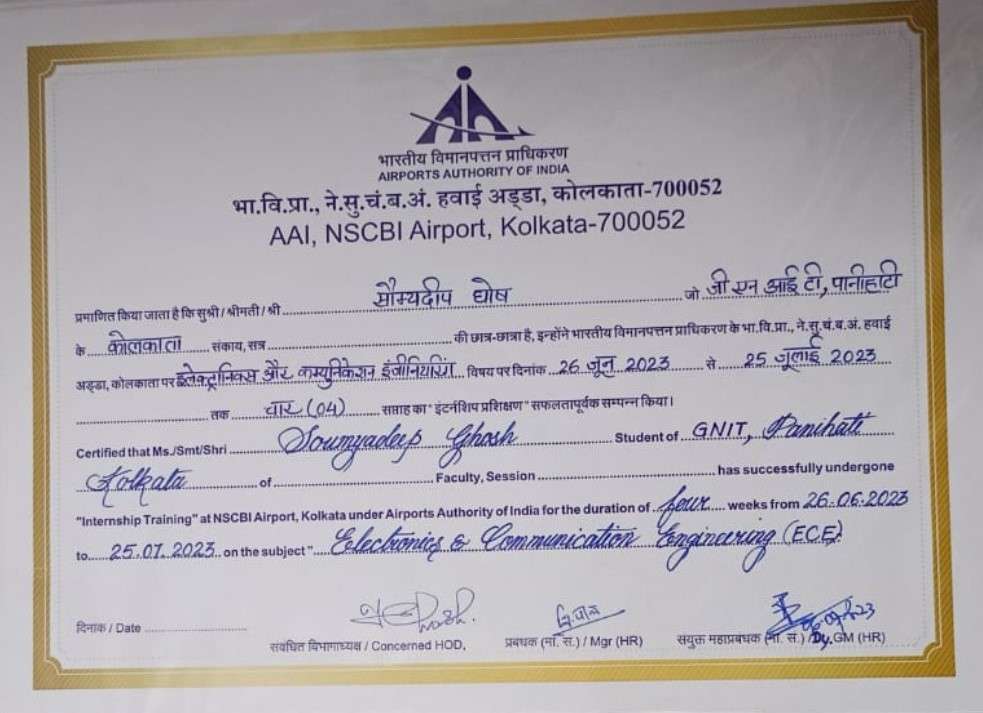 भारतीय विमानपत्तन प्राधिकरण
AIRPORTS AUTHORITY OF INDIA
भा.वि.प्रा., ने.सु.चं.ब.अं. हवाई अड्डा, कोलकाता-700052
AAI, NSCBI Airport, Kolkata-700052
प्रमाणित किया जाता है कि सुश्री / श्रीमती / श्री सौम्यदीप घोष जो जी एन आई टी, पानीहाटी
के कोलकाता संकाय, सत्र की छात्र-छात्रा है, इन्होंने भारतीय विमानपत्तन प्राधिकरण के भा.वि.प्रा., ने.सु.चं.ब.अं. हवाई
अड्डा, कोलकाता पर इलेक्ट्रानिक्स और कम्युनिकेशन इंजीनियरिंग विषय पर दिनांक 26 जून 2023 से 25 जुलाई 2023
तक चार (04) सप्ताह का "इंटर्नशिप प्रशिक्षण" सफलतापूर्वक सम्पन्न किया।
Certified that Ms./Smt/Shri Soumyadeep Ghosh Student of GNIT, Panihati
Kolkata of Faculty, Session has successfully undergone
"Internship Training" at NSCBI Airport, Kolkata under Airports Authority of India for the duration of four weeks from 26.06.2023
to 25.07.2023 on the subject " Electronics & Communication Engineering (ECE)
दिनांक / Date
संबंधित विभागाध्यक्ष / Concerned HOD, प्रबंधक (मा. सं.) / Mgr (HR) संयुक्त महाप्रबंधक (मा. सं.) / Dy. GM (HR)